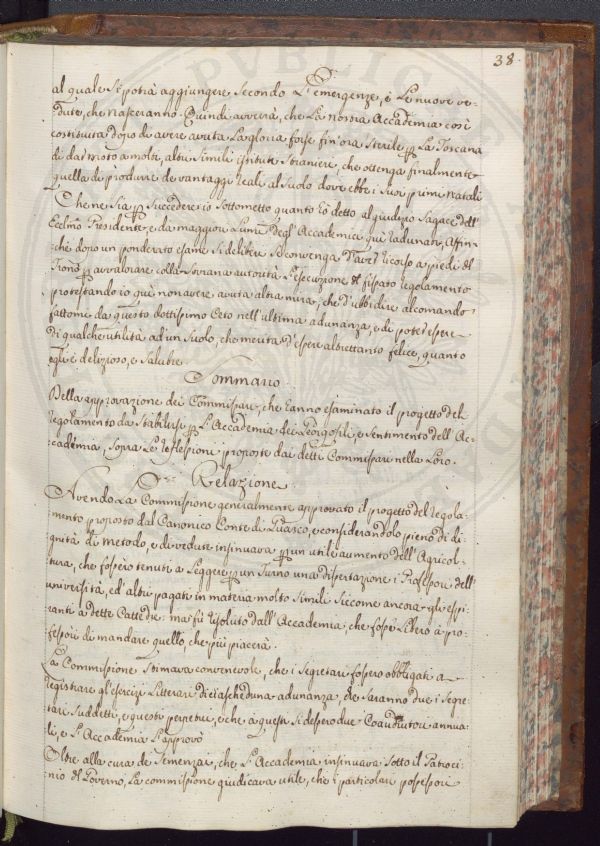 38.
al quale si potrà aggiungere secondo l'emergenze, e le nuove ve-
dute, che nasceranno. Quindi avverrà, che la nostra Accademia così
costituita dopo di avere avuta la gloria forse fin'ora sterile p la Toscana
di dar moto a molte altre simili istitute straniere, che ottenga finalmente
quella di produrre de vantaggi reali al suolo dove ebbe i suoi primi natali
Che ne sia p succedere io sottometto quanto ho detto al giudizio sagace dell'
Eccl̃mo Presidente, e da maggiori lumi degl'Accademici quì radunati, affin-
chè dopo un ponderato esame si delibere se convenga d'aver ricorso a piedi del
Trono p avvalorare colla sovrana autorità l'esecuzione del fissato regolamento
protestando io quì non avere avuta altra mira, che d'ubbidire al comando
fattomi da questo dottissimo Ceto nell'ultima adunanza, e di poter essere
di qualche utilità ad un suolo, che merita d'essere altrettanto felice, quanto
egli è delizioso, e salubre.
Sommario
Della approvazione dei Commissari, che hanno esaminato il progetto del
regolamento da stabilirsi p l'Accademia dei Georgofili, e sentimento dell'Ac-
cademia, sopra le reflessioni proposte dai detti Commissari nella loro.
Relazione
Avendo la Commissione generalmente approvato il progetto del regola-
mento proposto dal Canonico Conte di Guasco, e considerandolo pieno di di-
gnità di metodo, e di vedute insinuava p un utile aumento dell'Agricol-
tura, che fossero tenuti a leggere p un turno una dissertazione i Professori dell'
università, ed altri pagati in materia molto simili siccome ancora gli aspi-
ranti a dette Cattedre: ma fù risoluto dall'Accademia, che fosse libero a pro-
fessori di mandare quello, che più piacerà.
La Commissione stimava convenevole, che i Segretari fossero obbligati a
registrare gl'esercizi Litterari di ciascheduna adunanza, che saranno due i Segre-
tari suddetti, e questi perpetui, e che a questi si dessero due Coadiutori annua-
li, e l'Accademia l'approvò
Oltre alla cura de semenzai, che l'Accademia insinuava sotto il Patroci-
nio del Governo, la commissione giudicava utile, che i particolari possessori